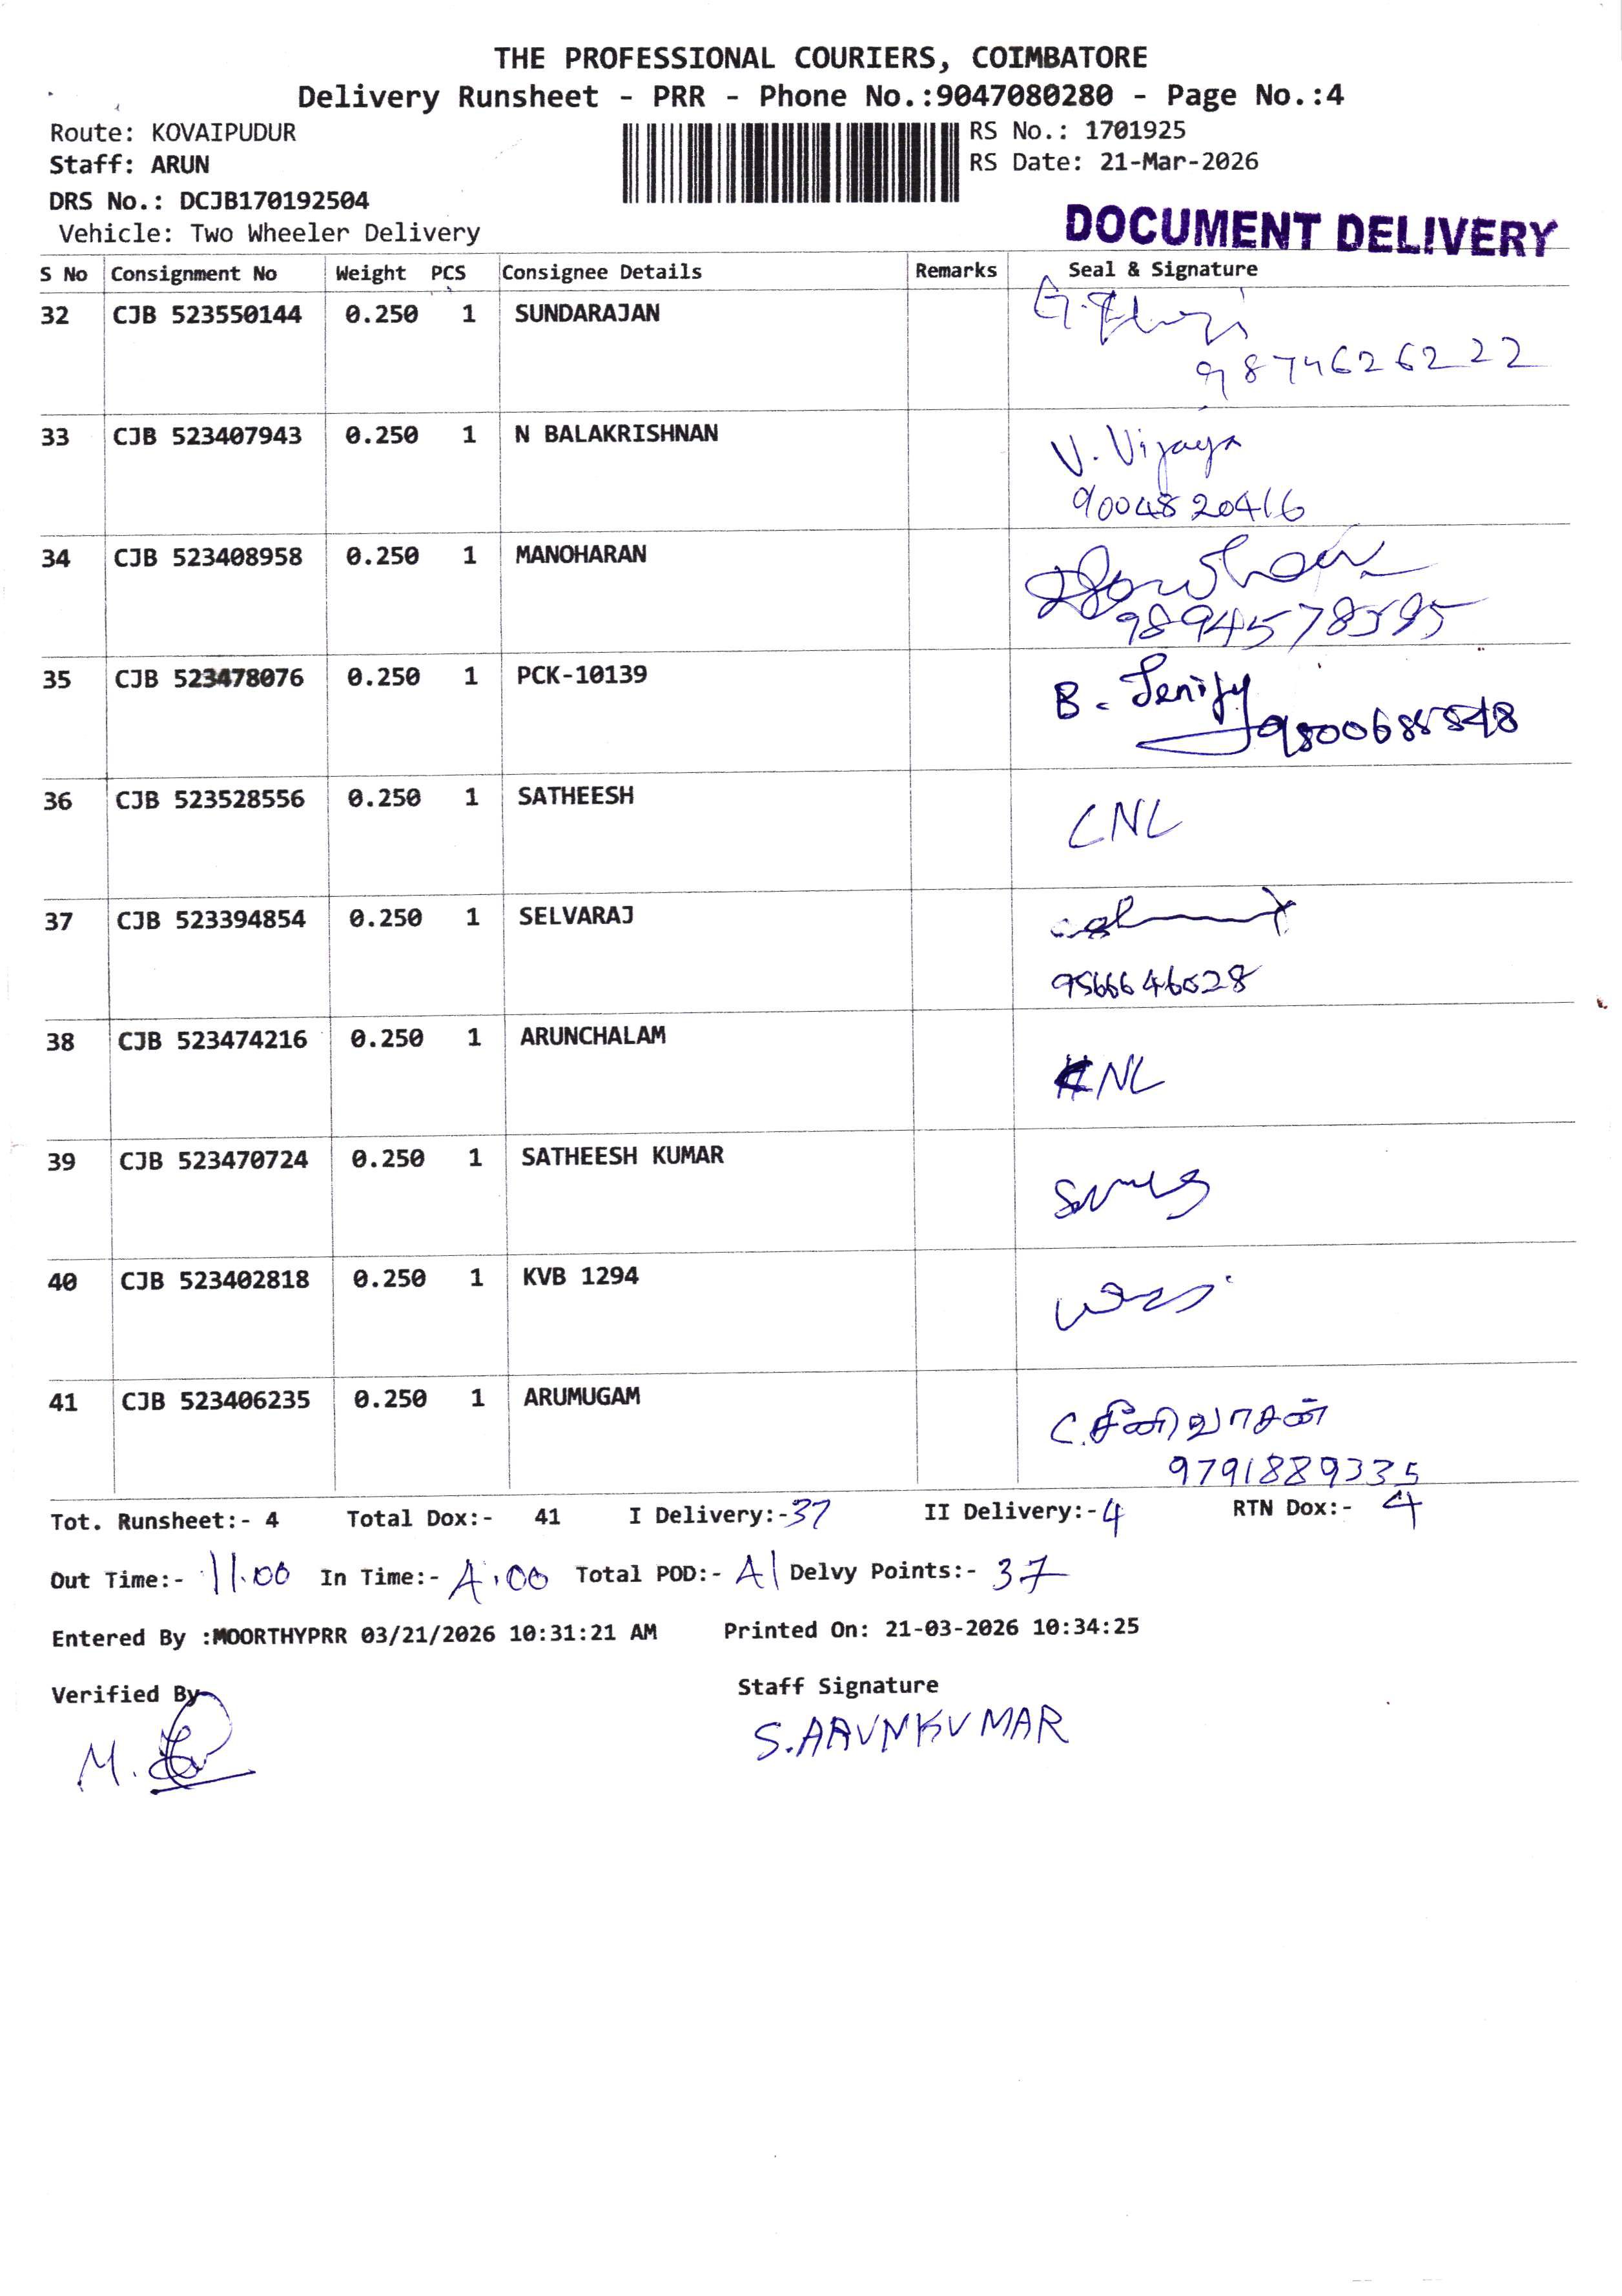 THE PROFESSIONAL COURIERS, COIMBATORE
Delivery Runsheet - PRR - Phone No.:9047080280 - Page No.:4
Route: KOVAIPUDUR
RS No.: 1701925
Staff: ARUN
RS Date: 21-Mar-2026
DRS No.: DCJB170192504
Vehicle: Two Wheeler Delivery
DOCUMENT DELIVERY
S No Consignment No Weight PCS Consignee Details Remarks Seal & Signature
32 CJB 523550144 0.250 1 SUNDARAJAN
9874626222
33 CJB 523407943 0.250 1 N BALAKRISHNAN V. Vijaya
9004820416
34 CJB 523408958 0.250 1 MANOHARAN
9894578595
35 CJB 523478076 0.250 1 PCK-10139 B.
36 CJB 523528556 0.250 1 SATHEESH CNL
37 CJB 523394854 0.250 1 SELVARAJ
38 CJB 523474216 0.250 1 ARUNCHALAM CNL
39 CJB 523470724 0.250 1 SATHEESH KUMAR
40 CJB 523402818 0.250 1 KVB 1294
41 CJB 523406235 0.250 1 ARUMUGAM C.சீனிவாசன்
9791889335
Tot. Runsheet:- 4 Total Dox:- 41 I Delivery:-37 II Delivery:-4 RTN Dox:- 4
Out Time:- 11.00 In Time:- 4.00 Total POD:- 41 Delvy Points:- 37
Entered By :MOORTHYPRR 03/21/2026 10:31:21 AM Printed On: 21-03-2026 10:34:25
Verified By Staff Signature
M. S.ARUNKUMAR